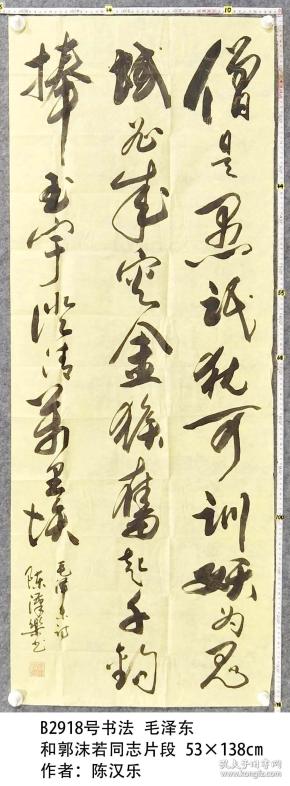 僧是愚氓犹可训妖为鬼
蜮必成灾金猴奮起千钧
棒玉宇澄清萬里埃
毛泽东诗
陈漢樂书
B2918号书法 毛泽东
和郭沫若同志片段 53×138cm
作者：陈汉乐